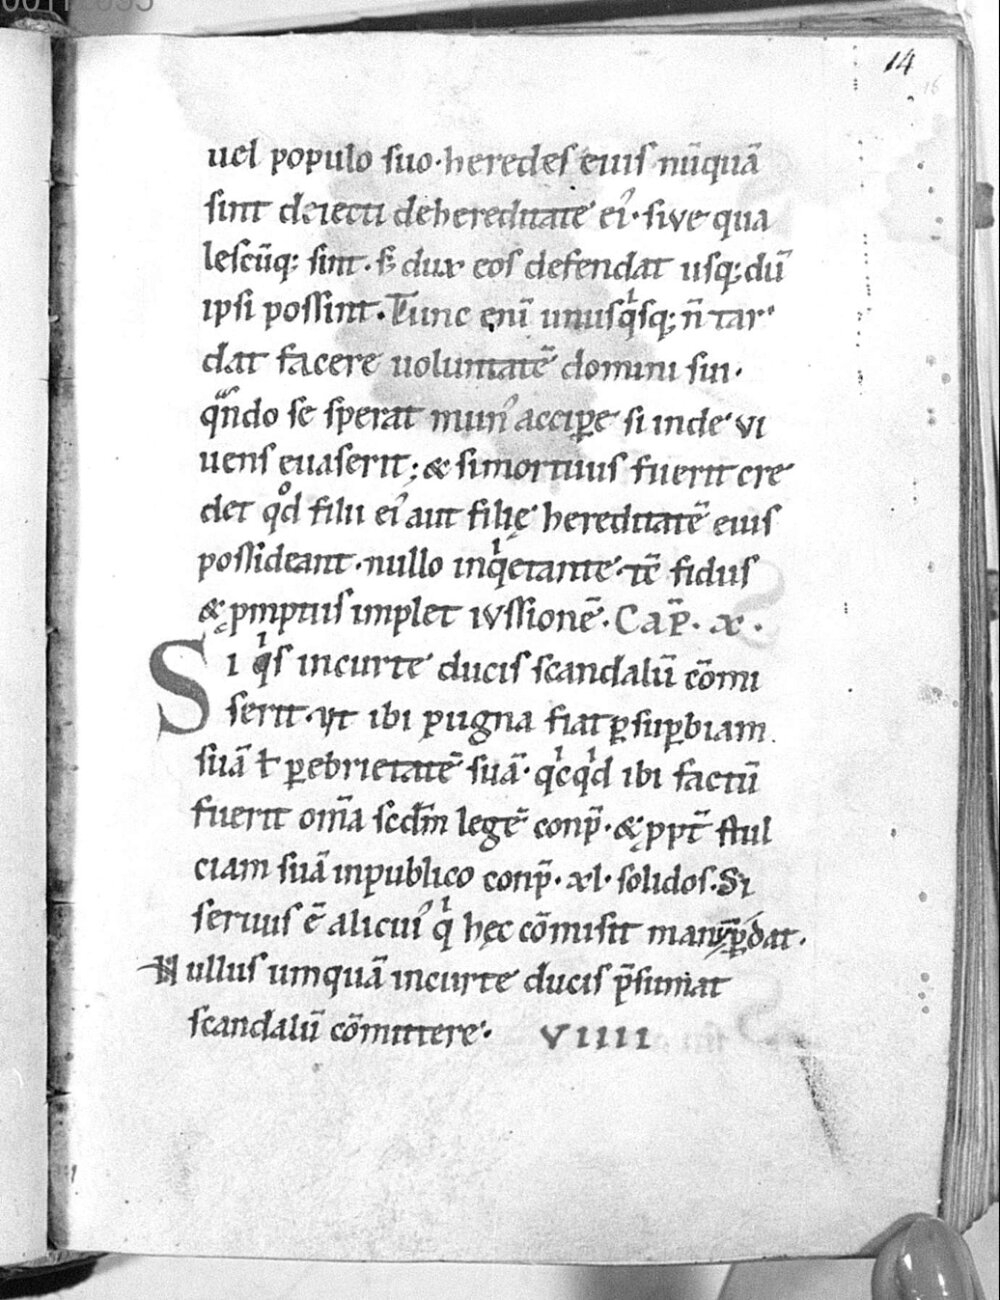 14
16
uel populo suo· heredes euis nūquā
sint deiecti dehereditate ei᾽· sive qua
lescūq; sint· s; dux eos defendat usq; dū
ipsi possint· Tunc eni̅ unusqͥsq; n̄ tar
dat facere uoluntatē domini sui·
qᵃndo se sperat mun᾽ accip̲e si inde vi
uens euaserit; & si mortuus fuerit cre
det qᵒd filii ei᾽ aut filię hereditatē eius
possideant· nullo inqͥetante· tc̄ fidus
& p̲mptus implet iussionē· Cap̄· x·
Si qͥs incurte ducis scandalū cōmi
serit· ut ibi pugna fiat p̲ sup̲biam
suā ł p̲ ebrietatē suā· qͥcqͥd ibi factū
fuerit om̄a scd̄m legē conp̄· & ppt̄ stul
ciam suā inpublico conp̄· xl· solidos· Si
seruus ē alicui᾽ qͥ hęc cōmisit man p̲dat·
Nullus umquā incurte ducis p̄sumat
scandalū cōmittere· VIIII